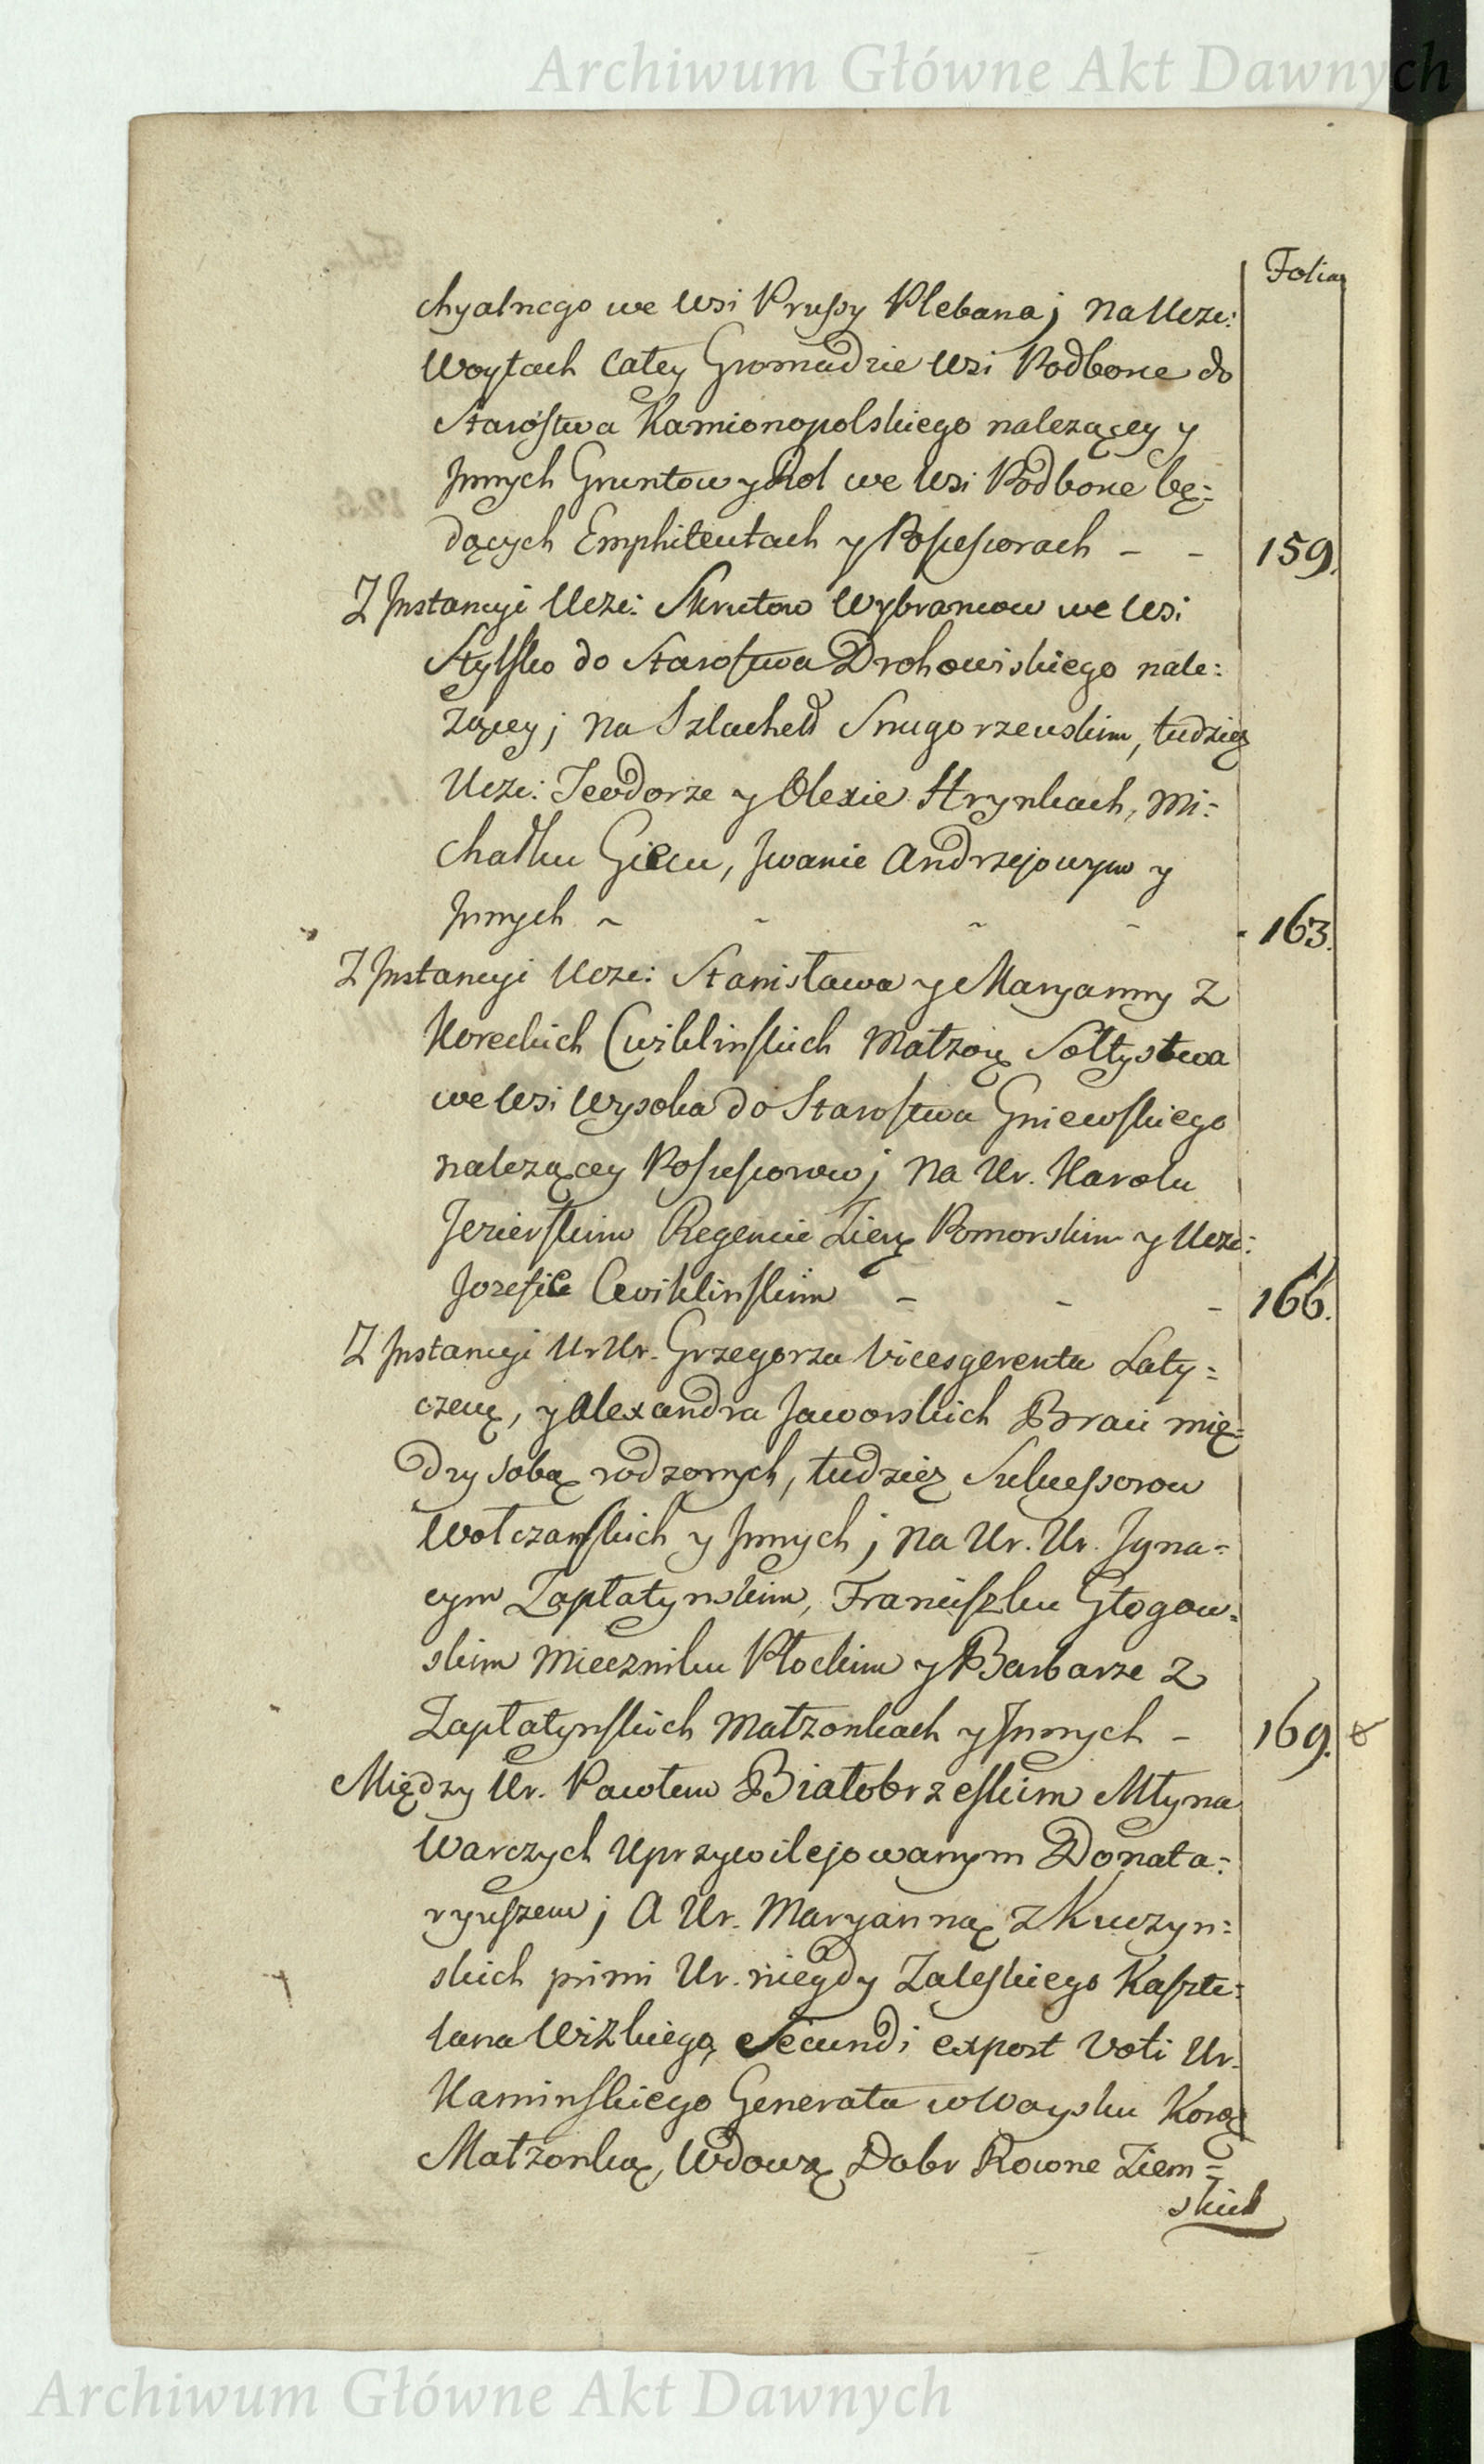 Archiwum Główne Akt Dawnych
Folia
chyalnego we Wsi Prussy Plebana; Na Ucze:
Woytach Całey Gromadzie Wsi Podborce do
Starostwa Kamionopolskiego nalezącey y
Jnnych Gruntow y Rol we Wsi Podborce bę=
dących Emphiteutach y Possessorach - - 159.
Z Jnstancyi Ucze: Skrutow Wybrancow we Wsi
Stylsko do Starostwa Drohowiskiego nale=
zącey; Na Szlachett Snugorzewskim, tudziez
Ucze: Teodorze y Olexie Hrynkach, Mi=
chałku Giecu, Jwanie Andrzejowym y
Jnnych - - - - 163.
Z Jnstancyi Ucze: Stanisława y Maryanny z
Koreckich Cwiklinskich Małzonę Sołtystwa
we Wsi Wysoka do Starostwa Gniewskiego
nalezącey Possessorow; Na Ur. Karolu
Jezierskim Regencie Ziem Pomorskim y Ucze:
Jozefie Cwiklinskim - - - 166.
Z Jnstancyi Ur Ur. Grzegorza Vicesgerenta Laty=
czew, y Alexandra Jaworskich Braci mię=
dzy sobą rodzonych, tudziez Sukcessorow
Wołczanskich y Jnnych; Na Ur. Ur. Jgna=
cym Zapłatynskim, Franciszku Głogow=
skim Mieczniku Płockim y Barbarze z
Zapłatynskich Małzonkach y Jnnych - 169.
Między Ur. Pawłem Białobrzeskim Młyna
Warczych Uprzywilejowanym Donata=
ryuszem; A Ur. Maryanną z Kuczyn=
skich primi Ur. niegdy Zaleskiego Kaszte=
lana Wizkiego, Secundi expost Voti Ur.
Kaminskiego Generała w Woysku Koro
Małzonką, Wdową Dobr Rowne Ziem=
skich
Archiwum Główne Akt Dawnych